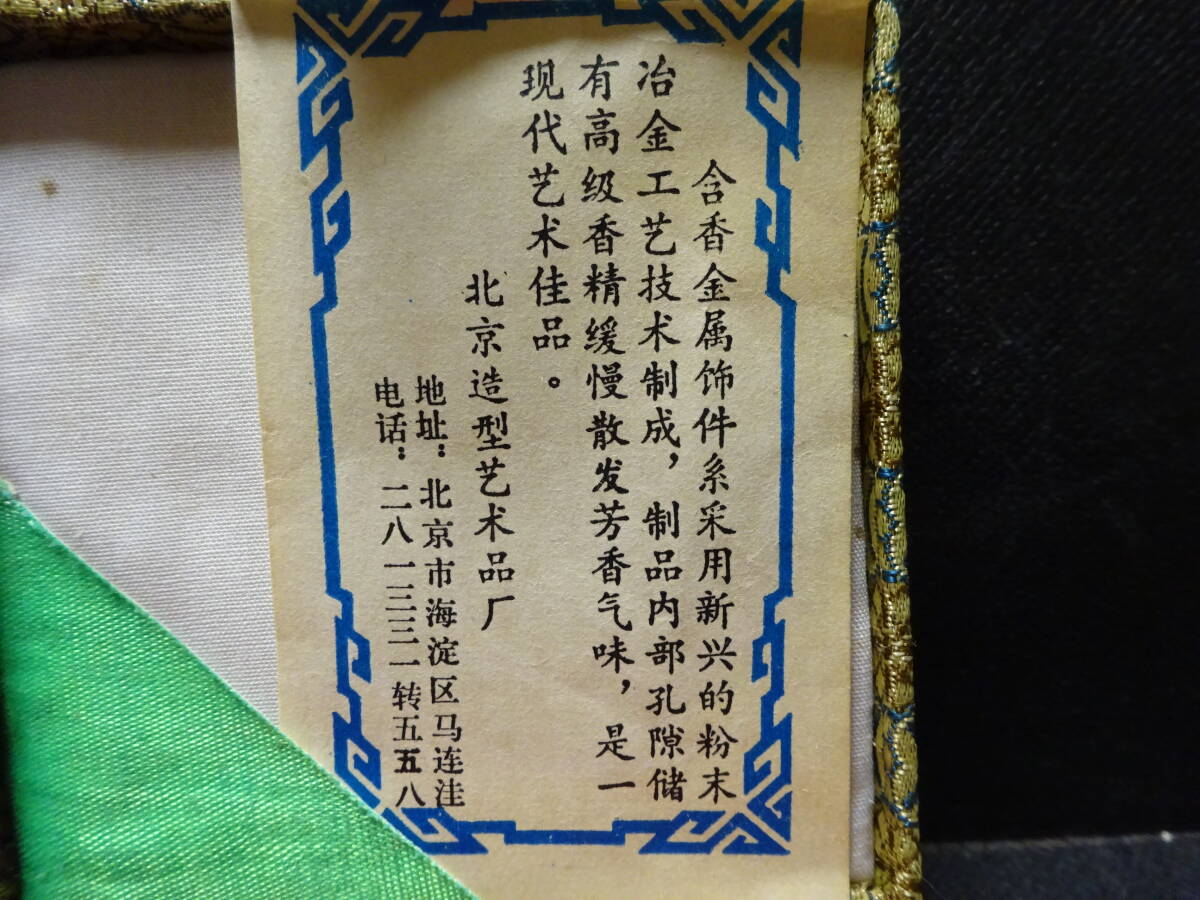 含香金属饰件系采用新兴的粉末
冶金工艺技术制成，制品内部孔隙储
有高级香精缓慢散发芳香气味，是一
现代艺术佳品。
北京造型艺术品厂
地址：北京市海淀区马连洼
电话：二八一三三一转五五八